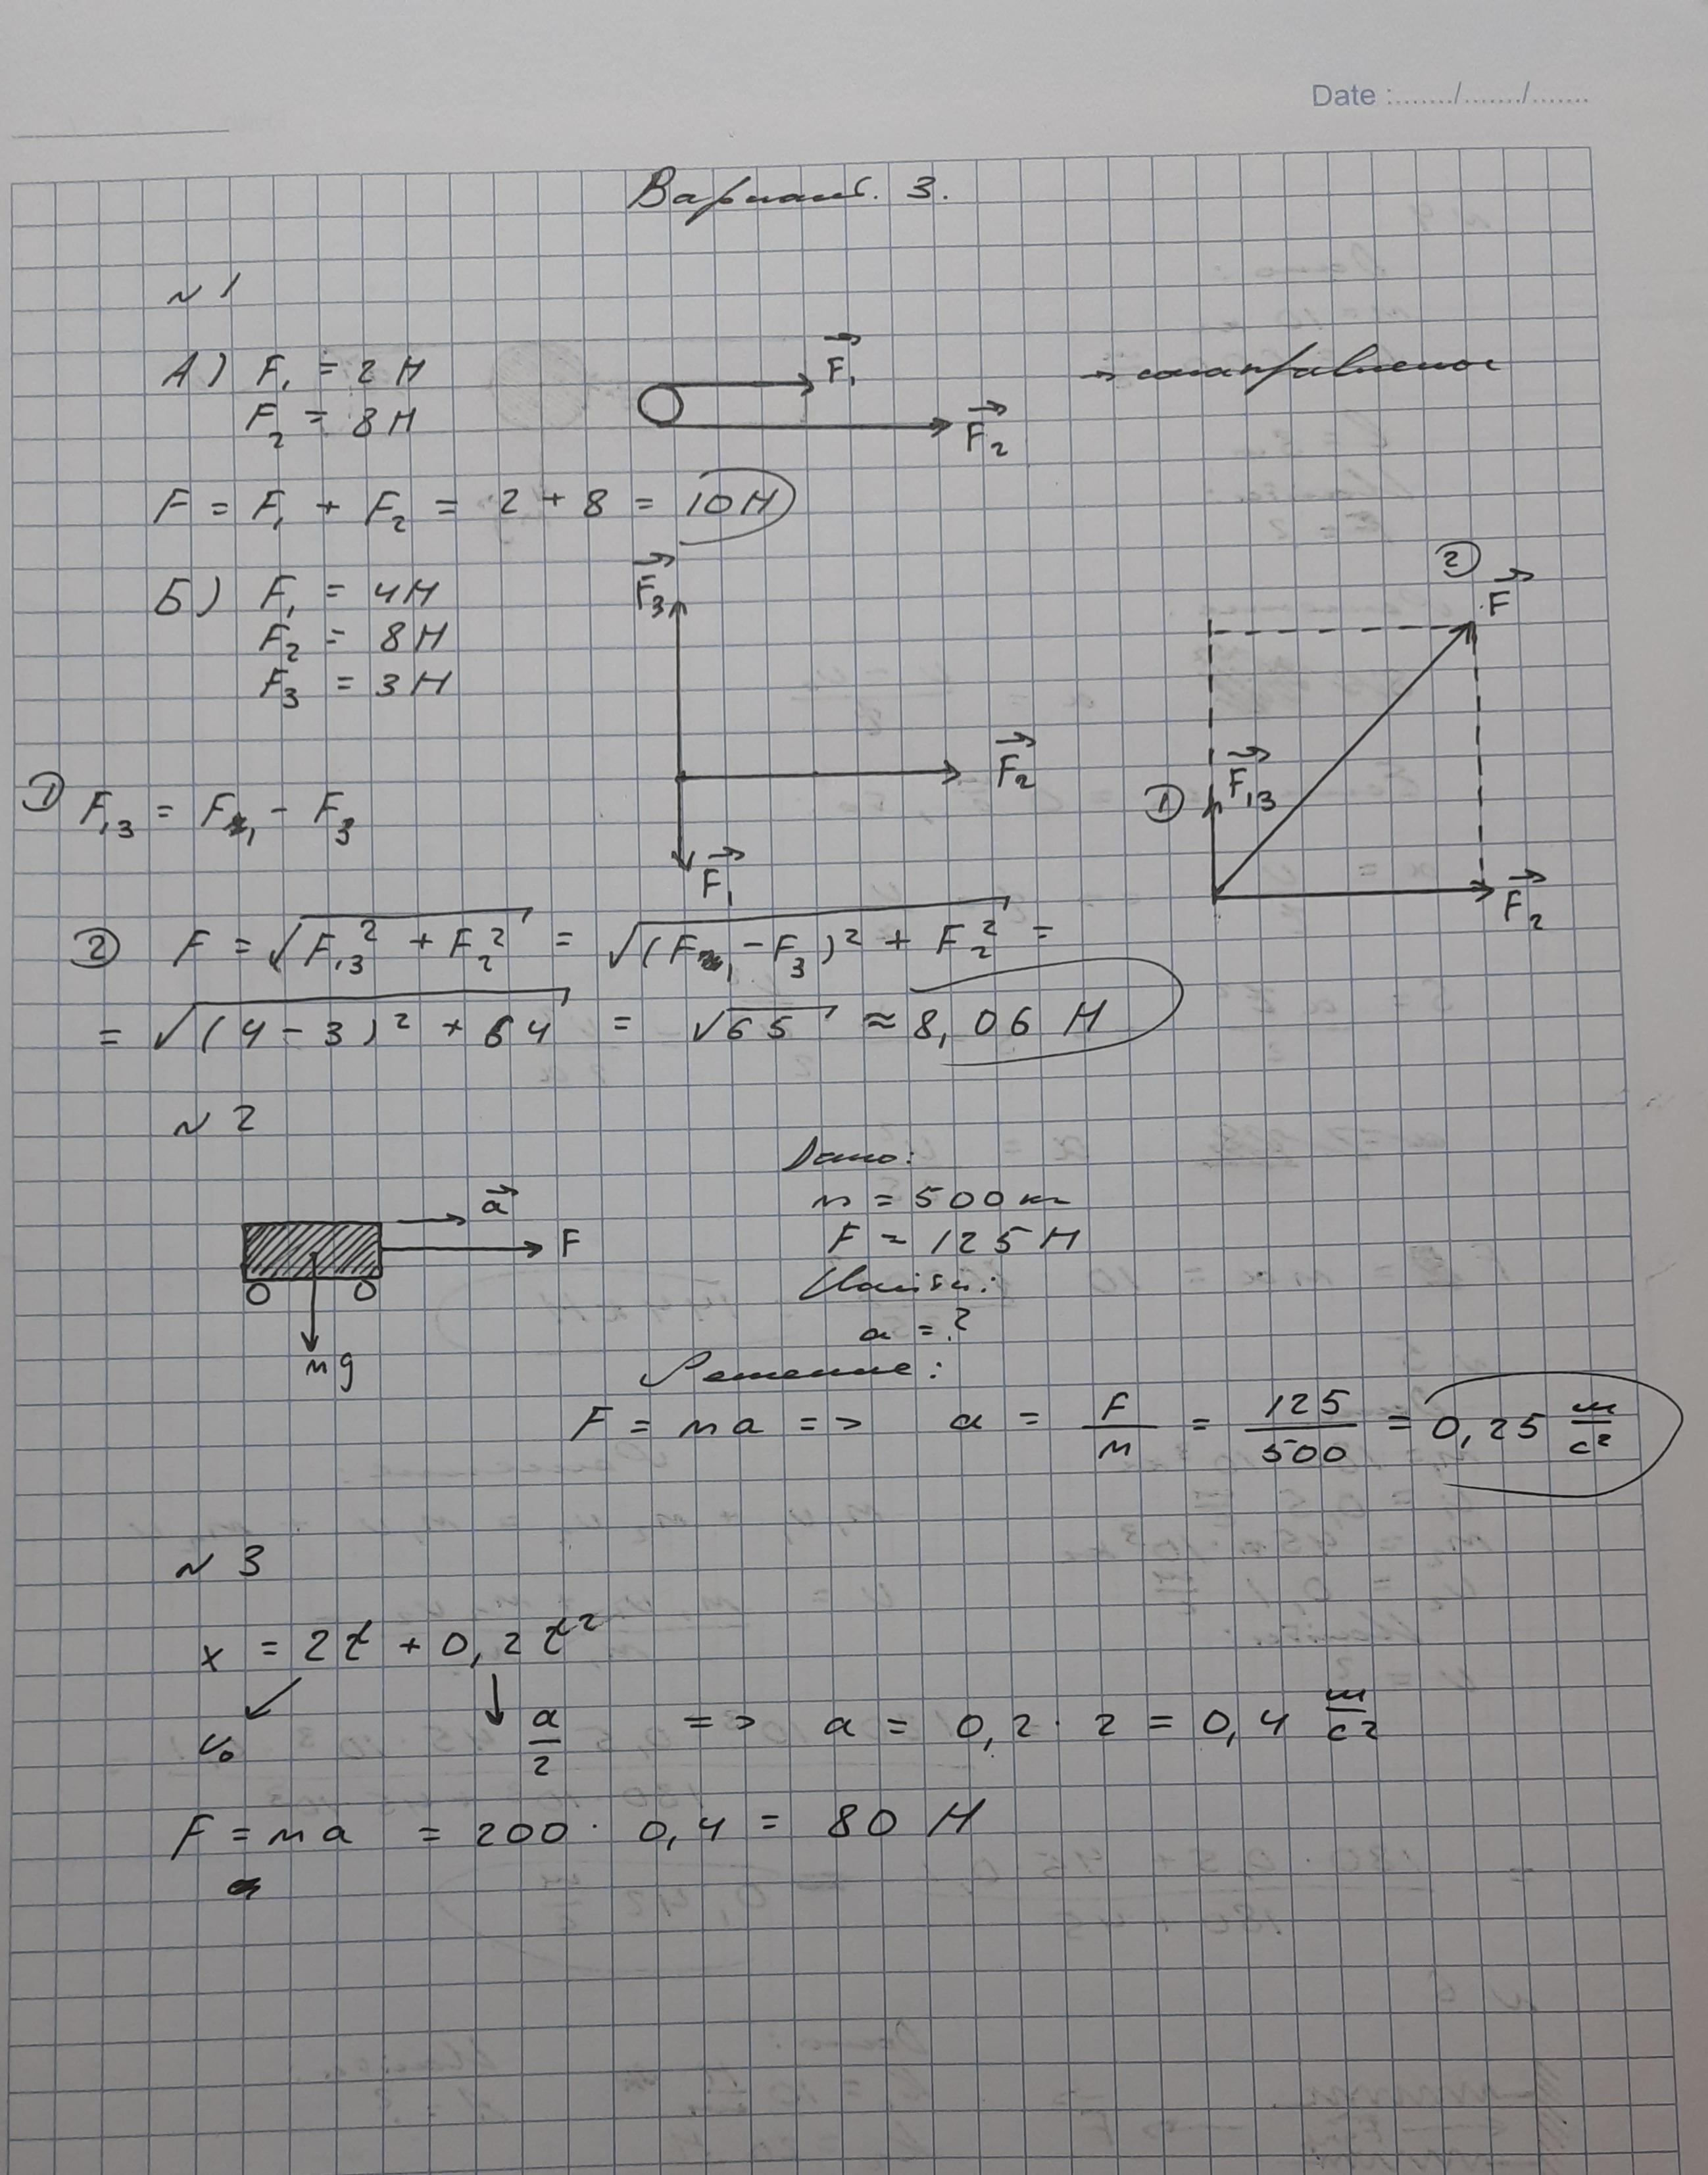 Date :......../......./.......
Вариант. 3.
№ 1
А) F₁ = 2 Н
F₂ = 8 Н
F₁
F₂
→ сонаправленное
F = F₁ + F₂ = 2 + 8 = 10 Н
Б) F₁ = 4 Н
F₂ = 8 Н
F₃ = 3 Н
F₃
F₂
F₁
② F
① F₁₃
F₂
① F₁₃ = F₁ - F₃
② F = √(F₁₃² + F₂²) = √((F₁ - F₃)² + F₂²) =
= √((4 - 3)² + 64) = √65 ≈ 8,06 Н
№ 2
a
F
mg
Дано:
m = 500 кг
F = 125 Н
Найти:
a = ?
Решение:
F = ma => a = F/m = 125/500 = 0,25 м/с²
№ 3
x = 2t + 0,2t²
v₀ a/2 => a = 0,2 · 2 = 0,4 м/с²
F = ma = 200 · 0,4 = 80 Н